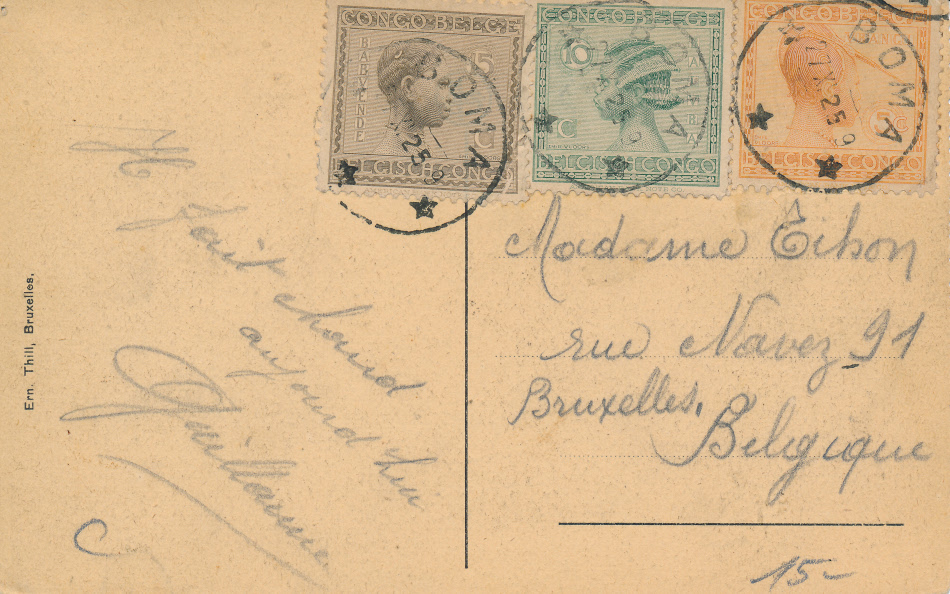 CONGO BELGE
BAKUNDE
5 C
BELGISCH CONGO
BOMA
25 9
CONGO BELGE
10 C
BELGISCH CONGO
BOMA
25
CONGO BELGE
5 C
BELGISCH CONGO
BOMA
27 X 25 9
Il
fait
chaud
aujourd hui
Guillaume
Ern. Thill, Bruxelles.
Madame Tihon
rue Navez 91
Bruxelles.
Belgique
15-